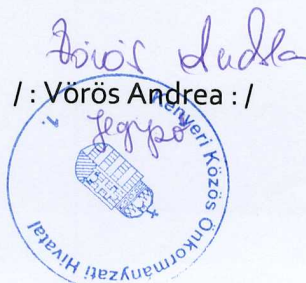 Vörös Andrea
/ : Vörös Andrea : /
jegyző
Kenyeri Közös Önkormányzati Hivatal
1.